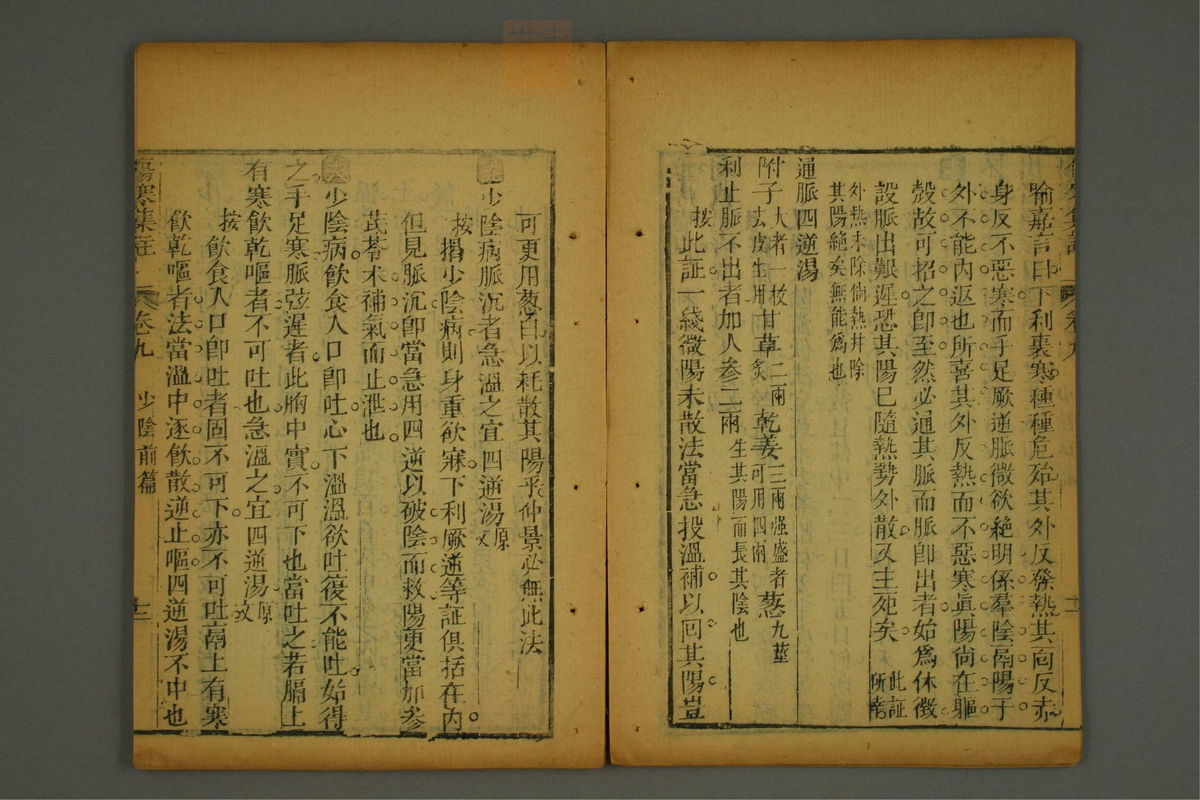 喻嘉言曰下利裏寒種種危殆其外反發熱其面反赤
身反不惡寒而手足厥逆脈微欲絕明係羣陰鬲陽于
外不能內返也所喜其外反熱而不惡寒眞陽尚在軀
殼故可招之卽至然必通其脈而脈卽出者始爲休徴
設脈出艱遲恐其陽已隨熱勢外散又主死矣此証
所幸
外熱未除倘熱并除
其陽絕矣無能爲也
通脈四逆湯
附子大者一枚
去皮生用甘草二兩
炙乾姜三兩强盛者
可用四兩葱九莖
利止脈不出者加人參二兩生其陽而長其陰也
按此証一綫微陽未散法當急投溫補以囘其陽豈
可更用葱白以耗散其陽乎仲景必無此法
少陰病脈沉者急溫之宜四逆湯原
文
按揭少陰病則身重欲寐下利厥逆等証俱括在內
但見脈沉卽當急用四逆以破陰而救陽更當加參
芪苓术補氣而止泄也
少陰病飮食入口卽吐心下溫溫欲吐復不能吐始得
之手足寒脈弦遲者此胸中實不可下也當吐之若膈上
有寒飮乾嘔者不可吐也急溫之宜四逆湯原
文
按飮食入口卽吐者固不可下亦不可吐鬲上有寒
飮乾嘔者法當溫中逐飮散逆止嘔四逆湯不中也
傷寒集註 卷九 少陰前篇 十二